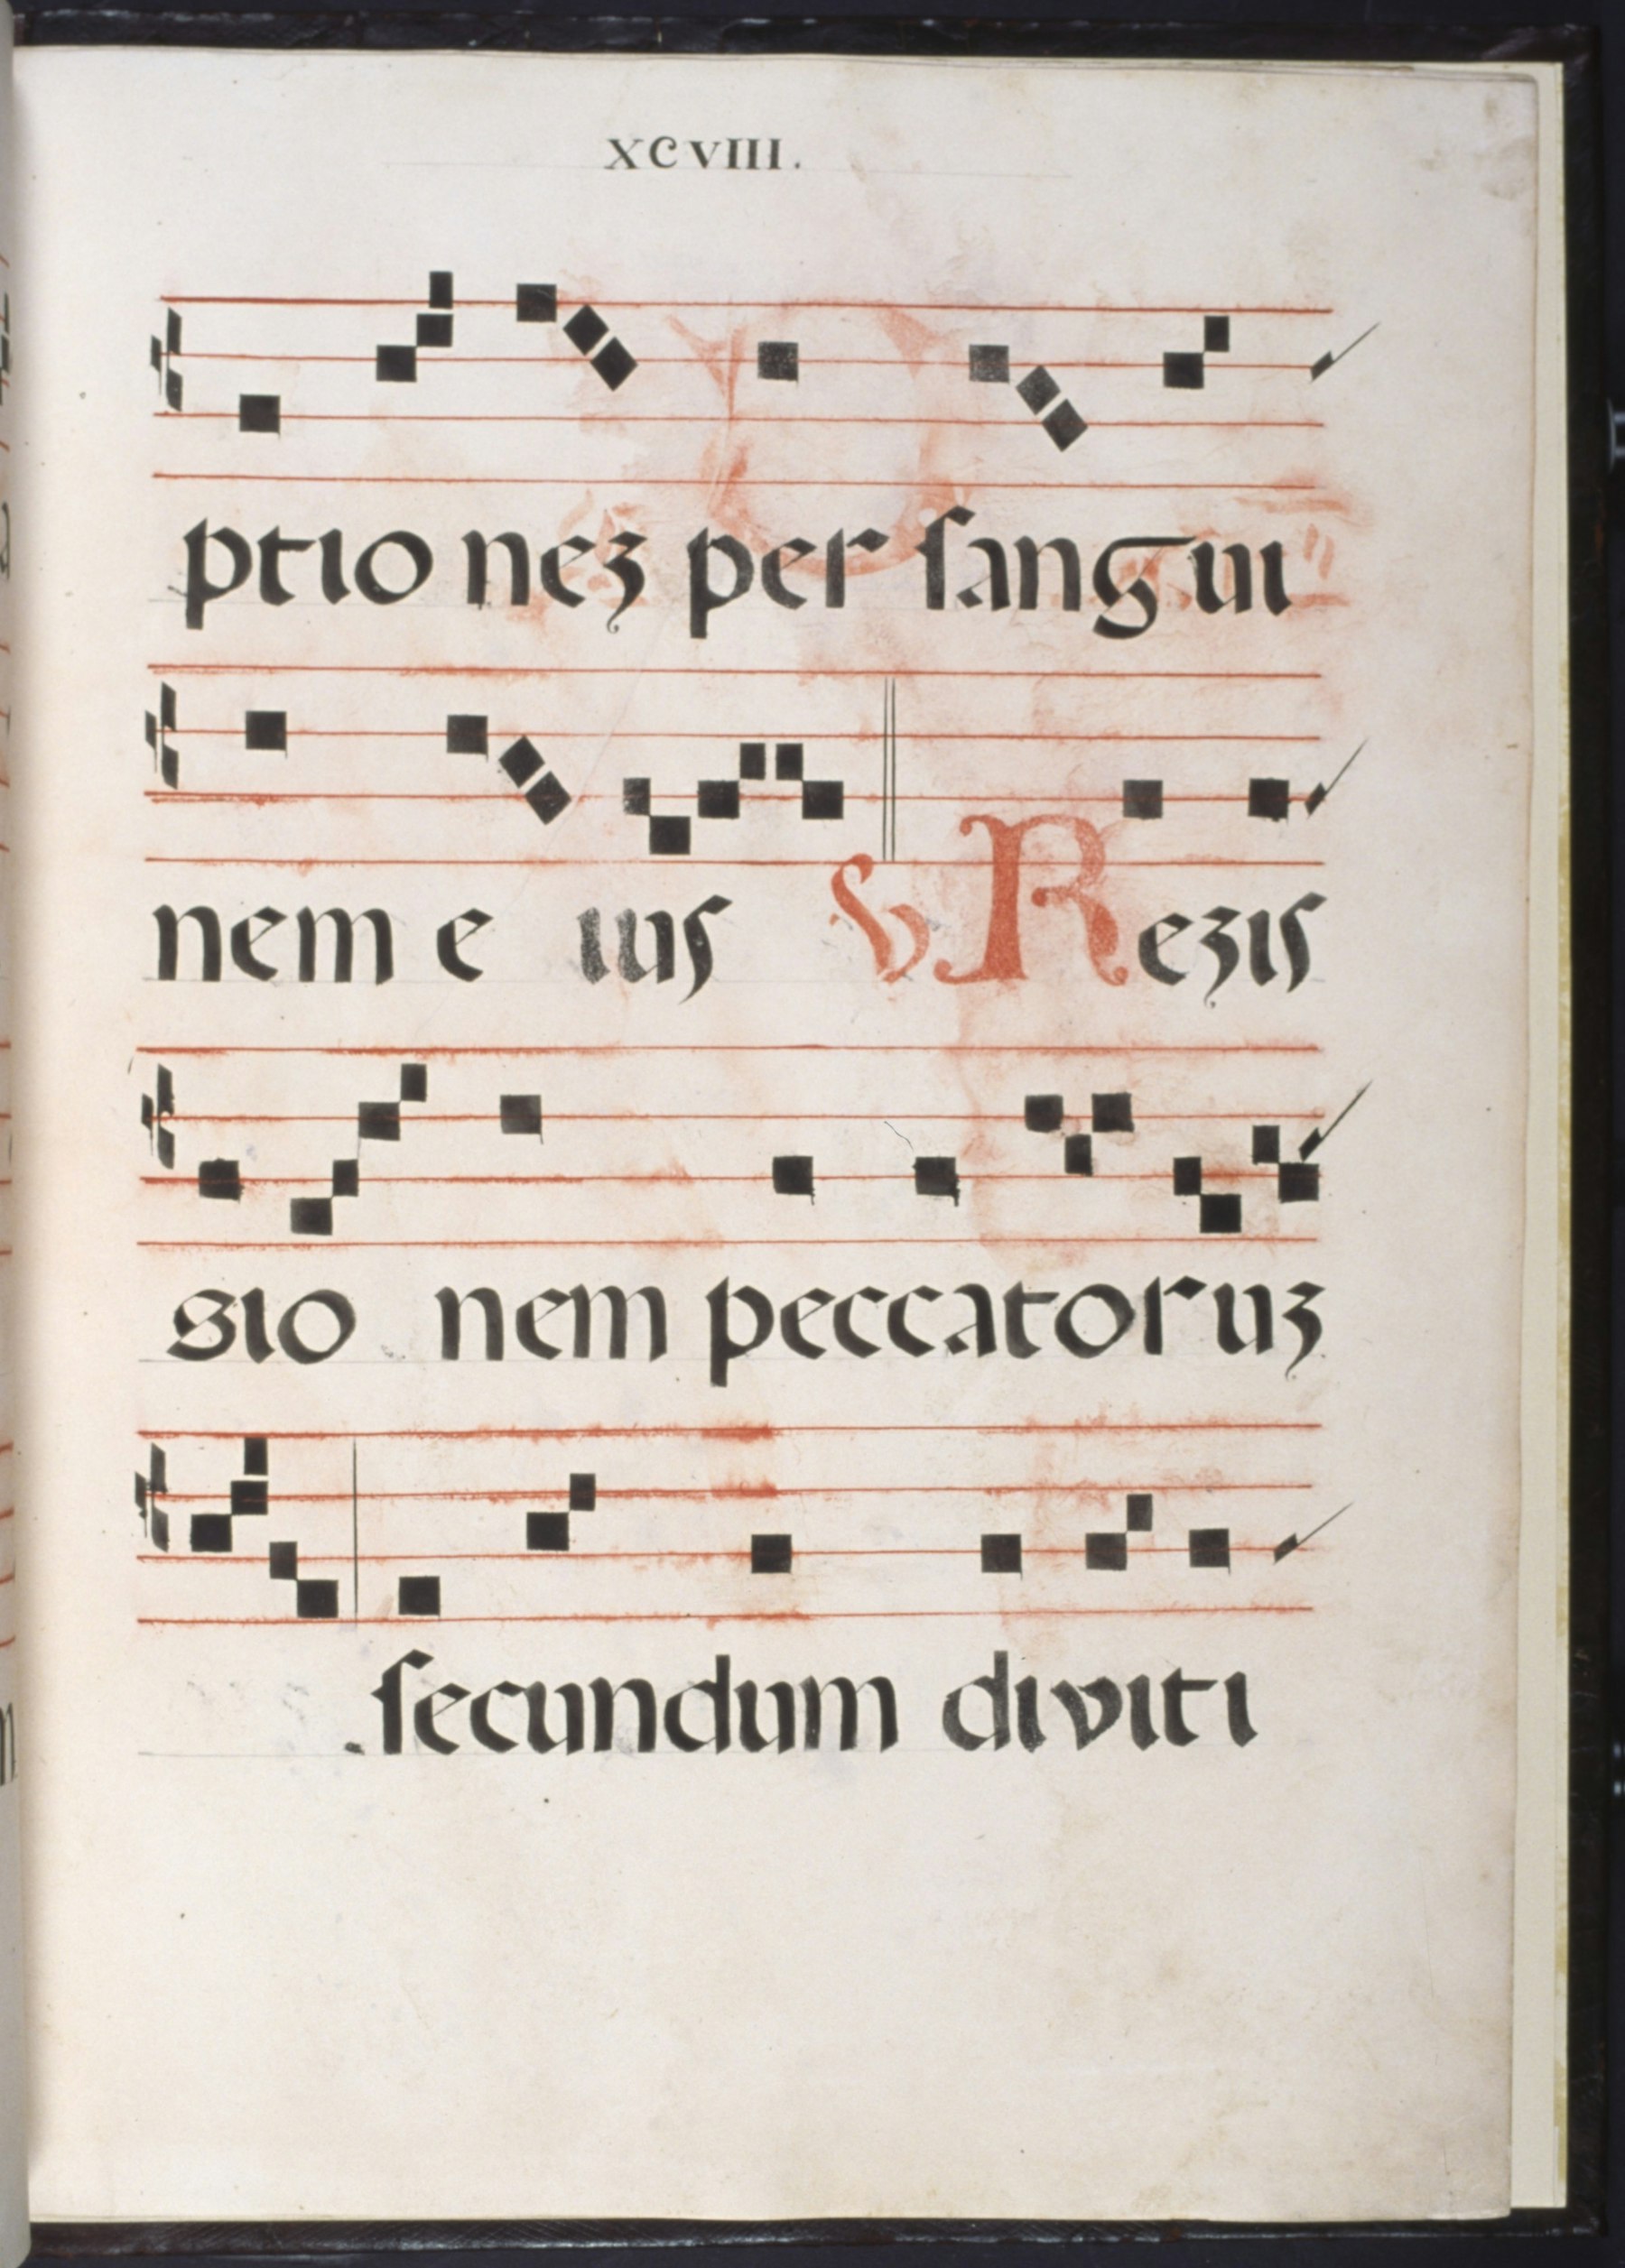 XCVIII.
ptio nez per sangui
nem e ius V Rezis
sio nem peccatoruz
.secundum diviti